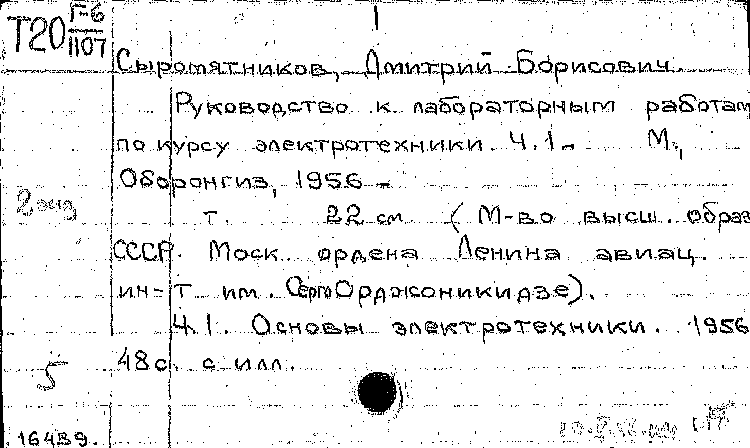 Т20 Г-6
1107
Сыромятников, Дмитрий Борисович.
Руководство к лабораторным работам
по курсу электротехники. Ч.1- М.,
Оборонгиз, 1956 -
2 экз
т. 22 см (М-во высш. образ
СССР. Моск. ордена Ленина авиац.
ин-т им. Серго Орджоникидзе).
Ч.1. Основы электротехники. 1956
48с. с илл.
5
16439.